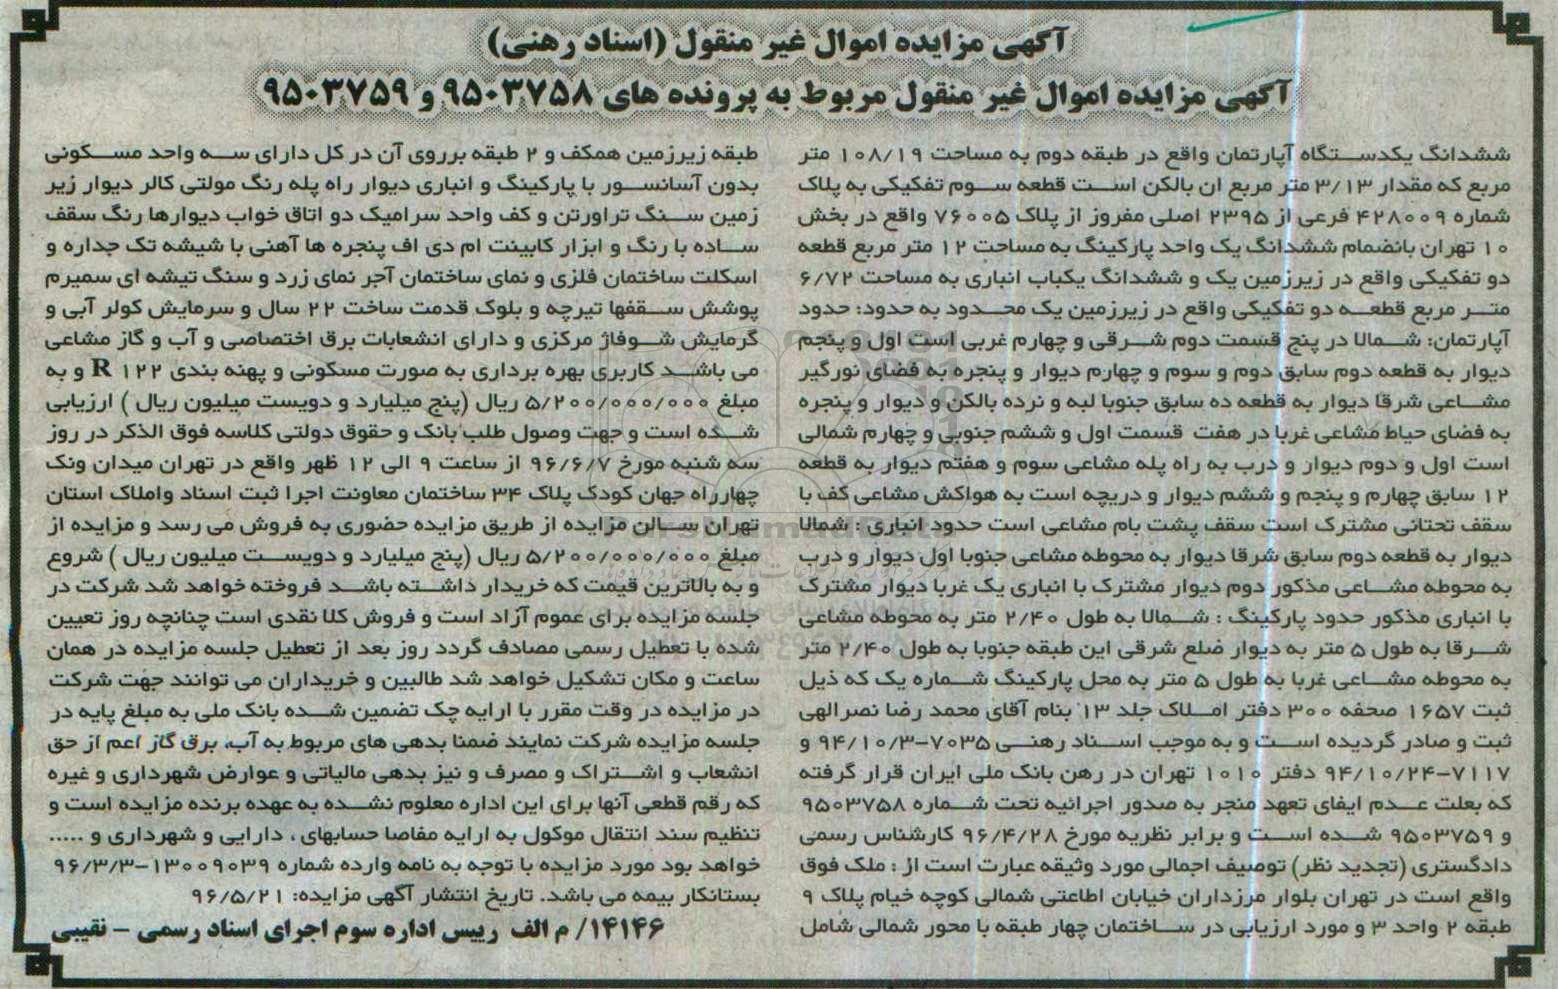 آگهی مزایده اموال غیر منقول (اسناد رهنی)
آگهی مزایده اموال غیر منقول مربوط به پرونده های ۹۵۰۳۷۵۸ و ۹۵۰۳۷۵۹
ششدانگ یکدستگاه آپارتمان واقع در طبقه دوم به مساحت ۱۰۸/۱۹ متر
مربع که مقدار ۳/۱۳ متر مربع ان بالکن است قطعه سوم تفکیکی به پلاک
شماره ۴۲۸۰۰۹ فرعی از ۲۳۹۵ اصلی مفروز از پلاک ۷۶۰۰۵ واقع در بخش
۱۰ تهران بانضمام ششدانگ یک واحد پارکینگ به مساحت ۱۲ متر مربع قطعه
دو تفکیکی واقع در زیرزمین یک و ششدانگ یکباب انباری به مساحت ۶/۷۲
متر مربع قطعه دو تفکیکی واقع در زیرزمین یک محدود به حدود: حدود
آپارتمان: شمالا در پنج قسمت دوم شرقی و چهارم غربی است اول و پنجم
دیوار به قطعه دوم سابق دوم و سوم و چهارم دیوار و پنجره به فضای نورگیر
مشاعی شرقا دیوار به قطعه ده سابق جنوبا لبه و نرده بالکن و دیوار و پنجره
به فضای حیاط مشاعی غربا در هفت قسمت اول و ششم جنوبی و چهارم شمالی
است اول و دوم دیوار و درب به راه پله مشاعی سوم و هفتم دیوار به قطعه
۱۲ سابق چهارم و پنجم و ششم دیوار و دریچه است به هواکش مشاعی کف با
سقف تحتانی مشترک است سقف پشت بام مشاعی است حدود انباری : شمالا
دیوار به قطعه دوم سابق شرقا دیوار به محوطه مشاعی جنوبا اول دیوار و درب
به محوطه مشاعی مذکور دوم دیوار مشترک با انباری یک غربا دیوار مشترک
با انباری مذکور حدود پارکینگ : شمالا به طول ۲/۴۰ متر به محوطه مشاعی
شرقا به طول ۵ متر به دیوار ضلع شرقی این طبقه جنوبا به طول ۲/۴۰ متر
به محوطه مشاعی غربا به طول ۵ متر به محل پارکینگ شماره یک که ذیل
ثبت ۱۶۵۷ صحفه ۳۰۰ دفتر املاک جلد ۱۳ بنام آقای محمد رضا نصرالهی
ثبت و صادر گردیده است و به موجب اسناد رهنی ۷۰۳۵-۹۴/۱۰/۳ و
۷۱۱۷-۹۴/۱۰/۲۴ دفتر ۱۰۱۰ تهران در رهن بانک ملی ایران قرار گرفته
که بعلت عدم ایفای تعهد منجر به صدور اجرائیه تحت شماره ۹۵۰۳۷۵۸
و ۹۵۰۳۷۵۹ شده است و برابر نظریه مورخ ۹۶/۴/۲۸ کارشناس رسمی
دادگستری (تجدید نظر) توصیف اجمالی مورد وثیقه عبارت است از : ملک فوق
واقع است در تهران بلوار مرزداران خیابان اطاعتی شمالی کوچه خیام پلاک ۹
طبقه ۲ واحد ۳ و مورد ارزیابی در ساختمان چهار طبقه با محور شمالی شامل
طبقه زیرزمین همکف و ۲ طبقه برروی آن در کل دارای سه واحد مسکونی
بدون آسانسور با پارکینگ و انباری دیوار راه پله رنگ مولتی کالر دیوار زیر
زمین سنگ تراورتن و کف واحد سرامیک دو اتاق خواب دیوارها رنگ سقف
ساده با رنگ و ابزار کابینت ام دی اف پنجره ها آهنی با شیشه تک جداره و
اسکلت ساختمان فلزی و نمای ساختمان آجر نمای زرد و سنگ تیشه ای سمیرم
پوشش سقفها تیرچه و بلوک قدمت ساخت ۲۲ سال و سرمایش کولر آبی و
گرمایش شوفاژ مرکزی و دارای انشعابات برق اختصاصی و آب و گاز مشاعی
می باشد کاربری بهره برداری به صورت مسکونی و پهنه بندی R ۱۲۲ و به
مبلغ ۵/۲۰۰/۰۰۰/۰۰۰ ریال (پنج میلیارد و دویست میلیون ریال ) ارزیابی
شده است و جهت وصول طلب بانک و حقوق دولتی کلاسه فوق الذکر در روز
سه شنبه مورخ ۹۶/۶/۷ از ساعت ۹ الی ۱۲ ظهر واقع در تهران میدان ونک
چهارراه جهان کودک پلاک ۳۴ ساختمان معاونت اجرا ثبت اسناد واملاک استان
تهران سالن مزایده از طریق مزایده حضوری به فروش می رسد و مزایده از
مبلغ ۵/۲۰۰/۰۰۰/۰۰۰ ریال (پنج میلیارد و دویست میلیون ریال ) شروع
و به بالاترین قیمت که خریدار داشته باشد فروخته خواهد شد شرکت در
جلسه مزایده برای عموم آزاد است و فروش کلا نقدی است چنانچه روز تعیین
شده با تعطیل رسمی مصادف گردد روز بعد از تعطیل جلسه مزایده در همان
ساعت و مکان تشکیل خواهد شد طالبین و خریداران می توانند جهت شرکت
در مزایده در وقت مقرر با ارایه چک تضمین شده بانک ملی به مبلغ پایه در
جلسه مزایده شرکت نمایند ضمنا بدهی های مربوط به آب، برق گاز اعم از حق
انشعاب و اشتراک و مصرف و نیز بدهی مالیاتی و عوارض شهرداری و غیره
که رقم قطعی آنها برای این اداره معلوم نشده به عهده برنده مزایده است و
تنظیم سند انتقال موکول به ارایه مفاصا حسابهای ، دارایی و شهرداری و .....
خواهد بود مورد مزایده با توجه به نامه وارده شماره ۱۳۰۰۹۰۳۹-۹۶/۳/۳
بستانکار بیمه می باشد. تاریخ انتشار آگهی مزایده: ۹۶/۵/۲۱
۱۴۱۴۶/ م الف رییس اداره سوم اجرای اسناد رسمی - نقیبی